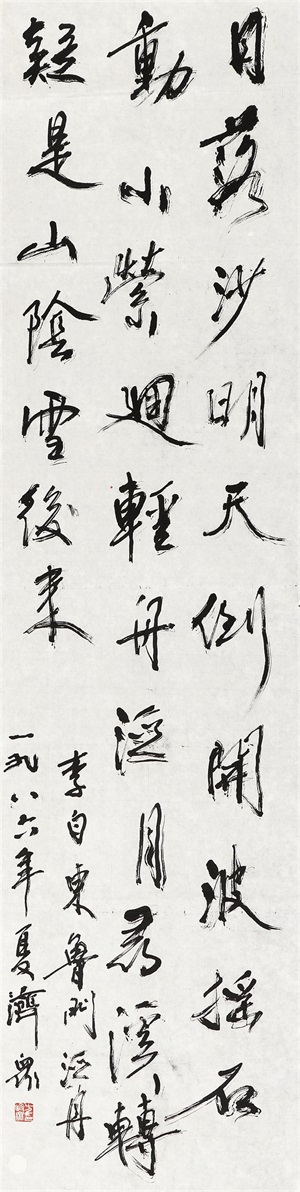 日落沙明天倒開波搖石
動水縈迴輕舟泛月尋溪轉
疑是山陰雪後來
李白東魯門泛舟
一九八六年夏濟眾